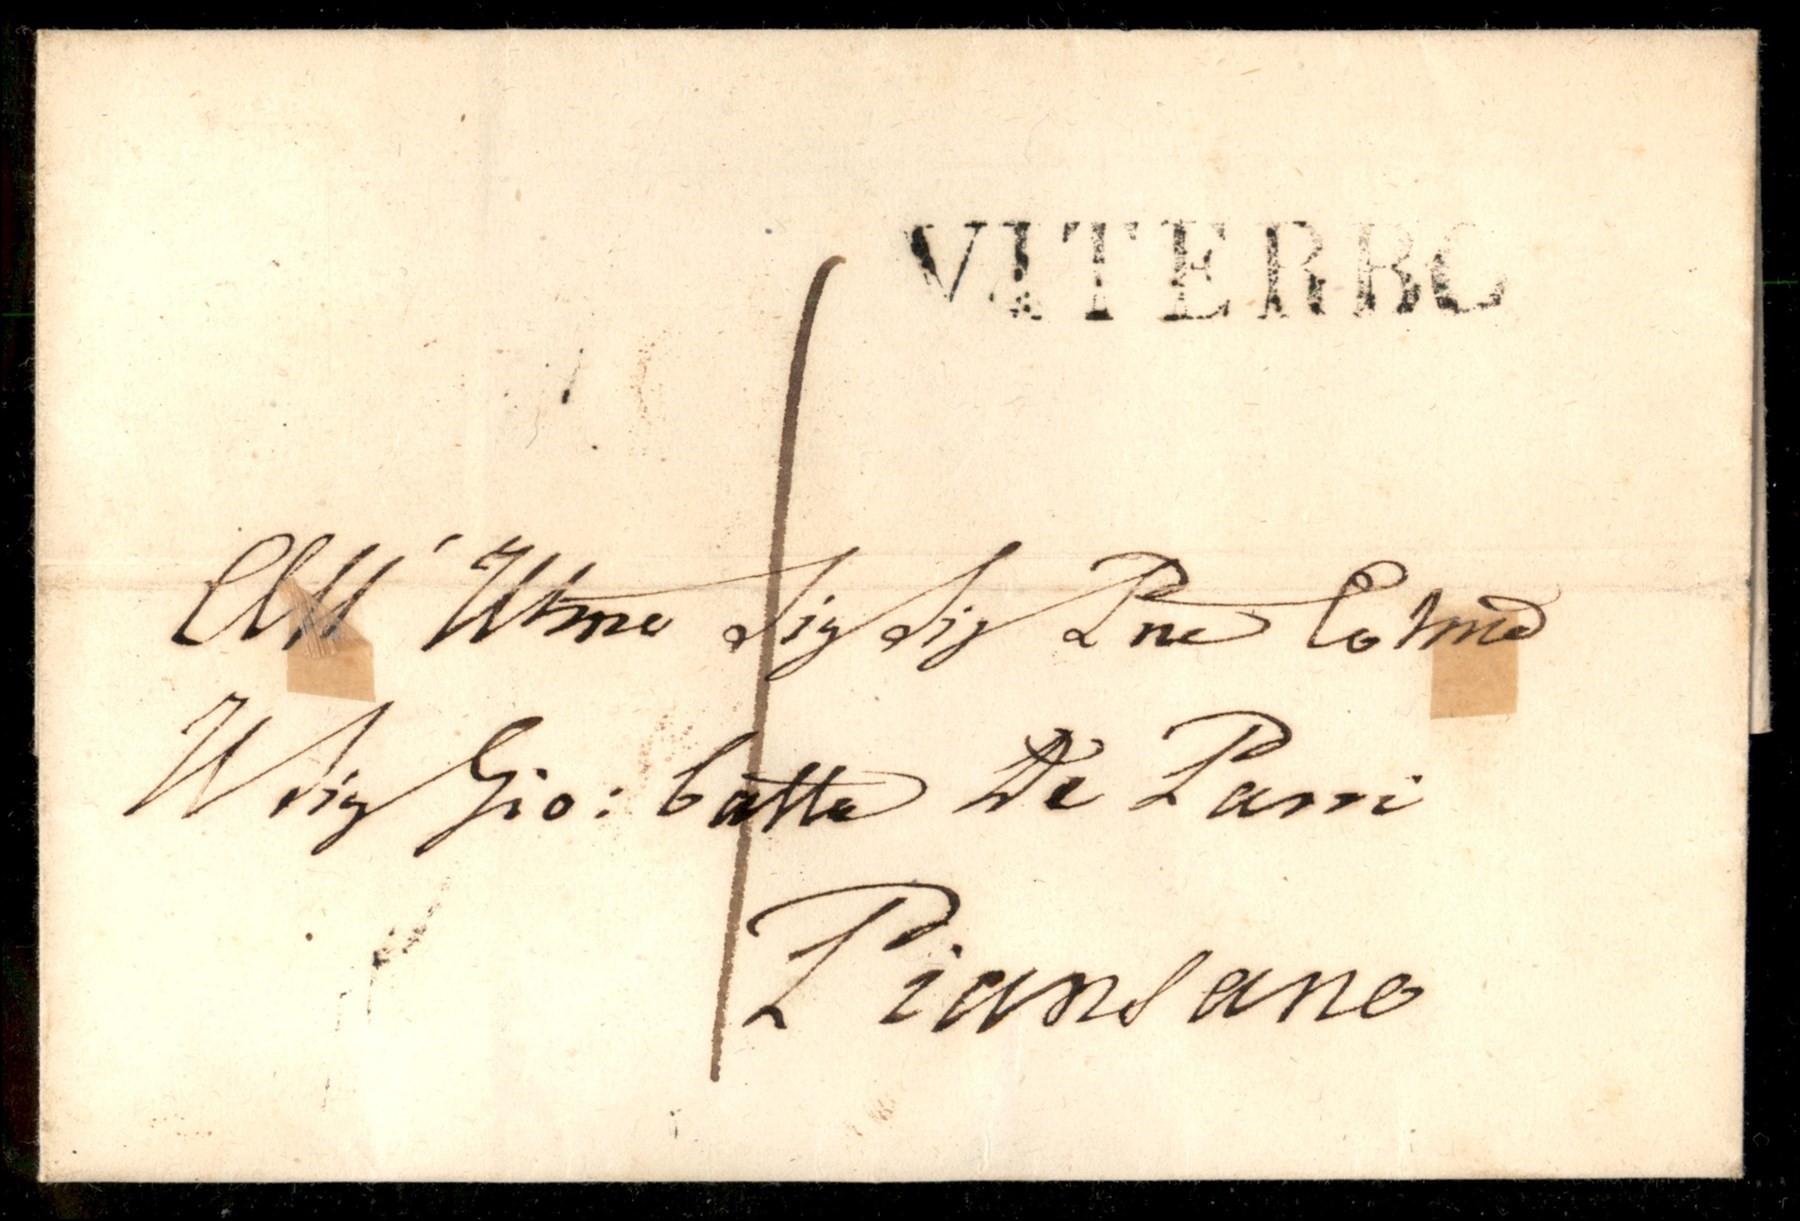 VITERBO
All' Illmo Sig Sig Pne Colmo
Il Sig Gio: Batta De Parri
Piansano